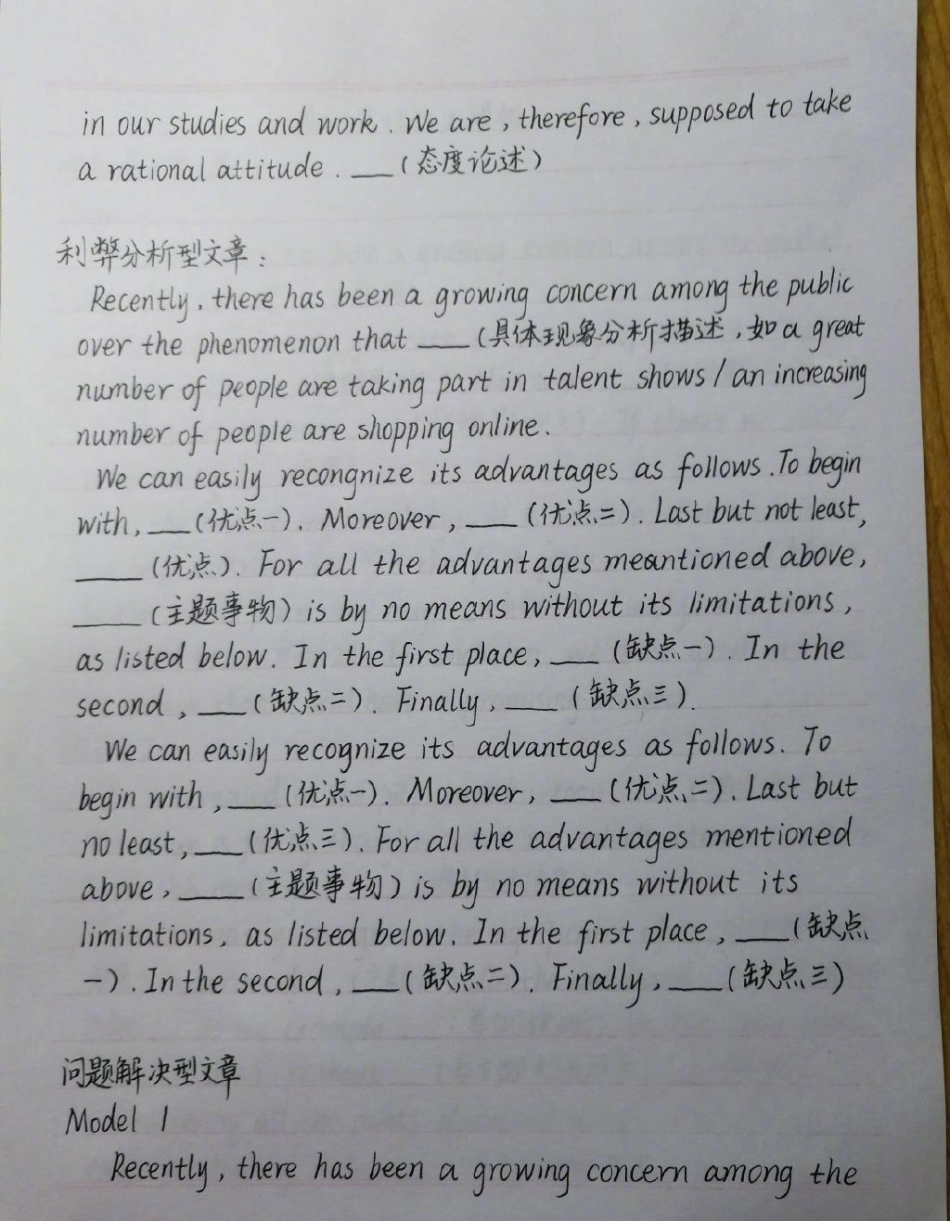 in our studies and work. We are, therefore, supposed to take
a rational attitude. ___(态度论述)
利弊分析型文章：
Recently, there has been a growing concern among the public
over the phenomenon that ___(具体现象分析描述,如a great
number of people are taking part in talent shows/an increasing
number of people are shopping online.
We can easily recongnize its advantages as follows. To begin
with, ___(优点一). Moreover, ___(优点二). Last but not least,
___(优点). For all the advantages meantioned above,
___(主题事物) is by no means without its limitations,
as listed below. In the first place, ___(缺点一). In the
second, ___(缺点二). Finally, ___(缺点三).
We can easily recognize its advantages as follows. To
begin with, ___(优点一). Moreover, ___(优点二). Last but
no least, ___(优点三). For all the advantages mentioned
above, ___(主题事物) is by no means without its
limitations, as listed below. In the first place, ___(缺点
一). In the second, ___(缺点二). Finally, ___(缺点三)
问题解决型文章
Model 1
Recently, there has been a growing concern among the